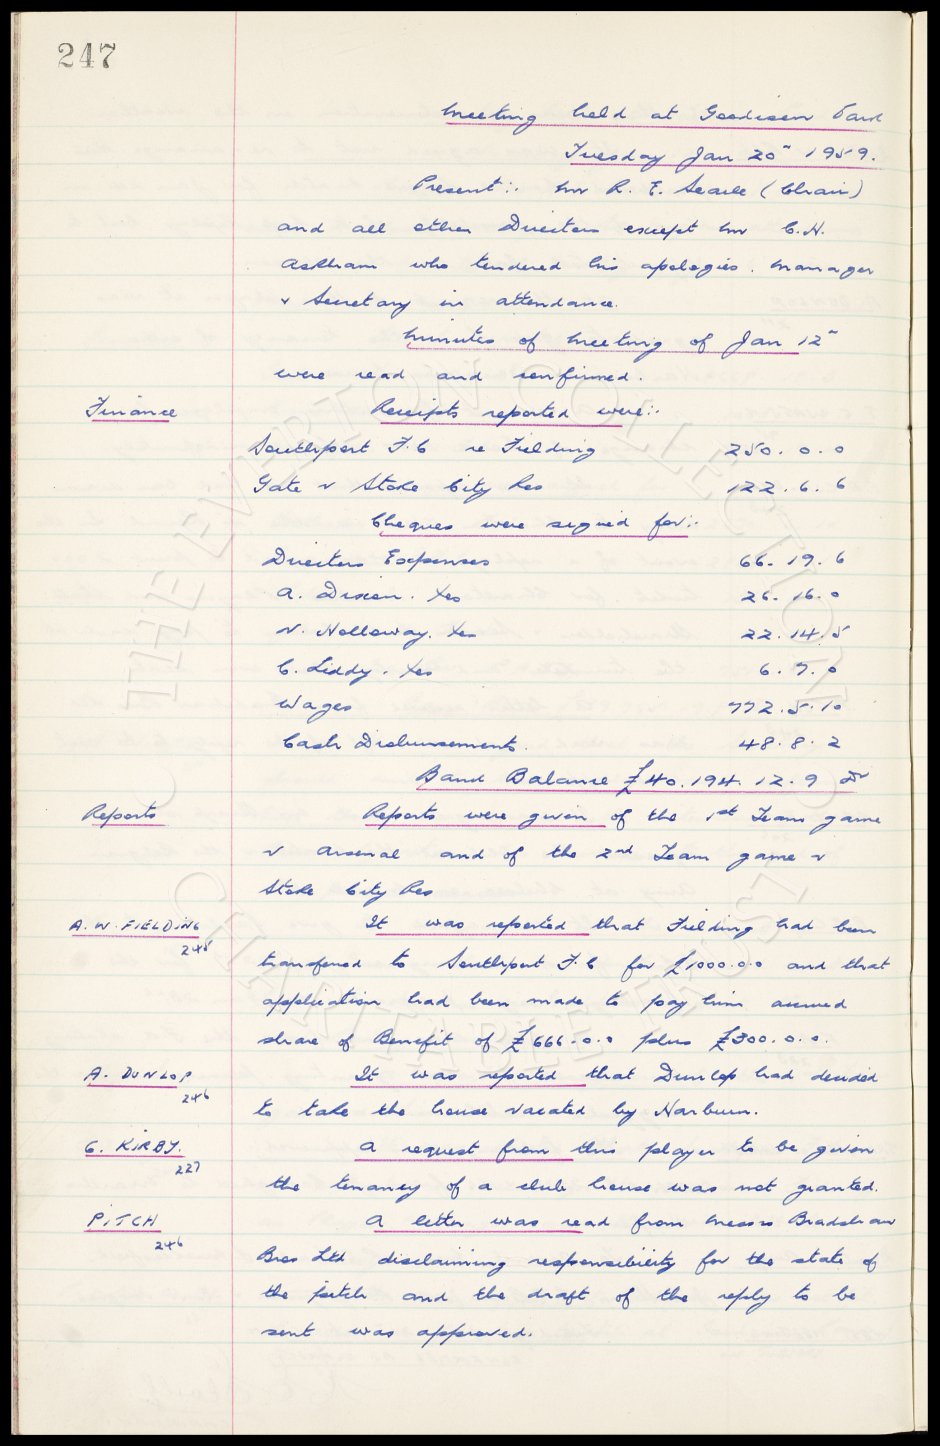 247
Meeting held at Goodison Park
Tuesday Jan 20" 1959.
Present:. Mr R. E. Searle (Chair)
and all other Directors except Mr C. H.
Askham who tendered his apologies. Manager
& Secretary in attendance.
Minutes of Meeting of Jan 12"
were read and confirmed.
Finance Receipts reported were:.
Southport F.C re Fielding 250. 0. 0
Gate v Stoke City Res 122. 6. 6
Cheques were signed for:.
Directors Expenses 66. 19. 6
A. Dixon. Yes 26. 16. 0
N. Holloway. Yes 22. 14. 5
C. Liddy. Yes 6. 7. 0
Wages 772. 5. 10
Cash Disbursements. 48. 8. 2
Bank Balance £40.194. 12. 9 Dr
Reports Reports were given of the 1st Team game
v Arsenal and of the 2nd Team game v
Stoke City Res
A. W. FIELDING It was reported that Fielding had been
245
transferred to Southport F.C for £1000.0.0 and that
application had been made to pay him accrued
share of Benefit of £666.0.0 plus £300.0.0.
A. DUNLOP It was reported that Dunlop had decided
246
to take the house vacated by Harburn.
G. KIRBY. A request from this player to be given
227
the tenancy of a club house was not granted.
PITCH A letter was read from Messrs Bradshaw
246
Bros Ltd disclaiming responsibility for the state of
the pitch and the draft of the reply to be
sent was approved.
© THE EVERTON COLLECTION CHARITABLE TRUST